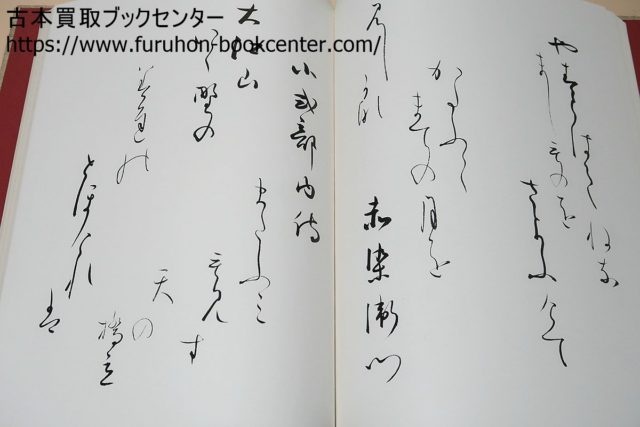 古本買取ブックセンター
https://www.furuhon-bookcenter.com/
やすらはてねな
ましものを
さよふけて
かたふく
まての月を
見しかな
赤染衛門
小式部内侍
大江山
いく野の
みちの
とほけれ
は
またふみ
もみす
天の
橋立